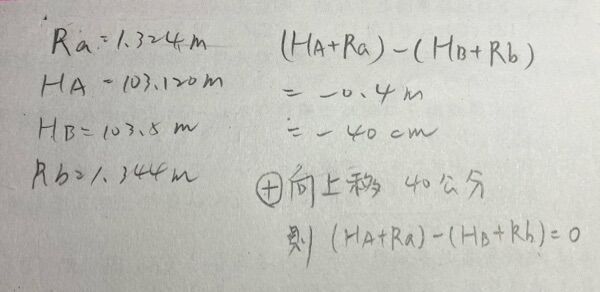 Ra=1.324m
HA=103.120m
HB=103.5m
Rb=1.344m
(HA+Ra)-(HB+Rb)
= -0.4m
= -40cm
⊕向上移 40公分
則 (HA+Ra)-(HB+Rb)=0